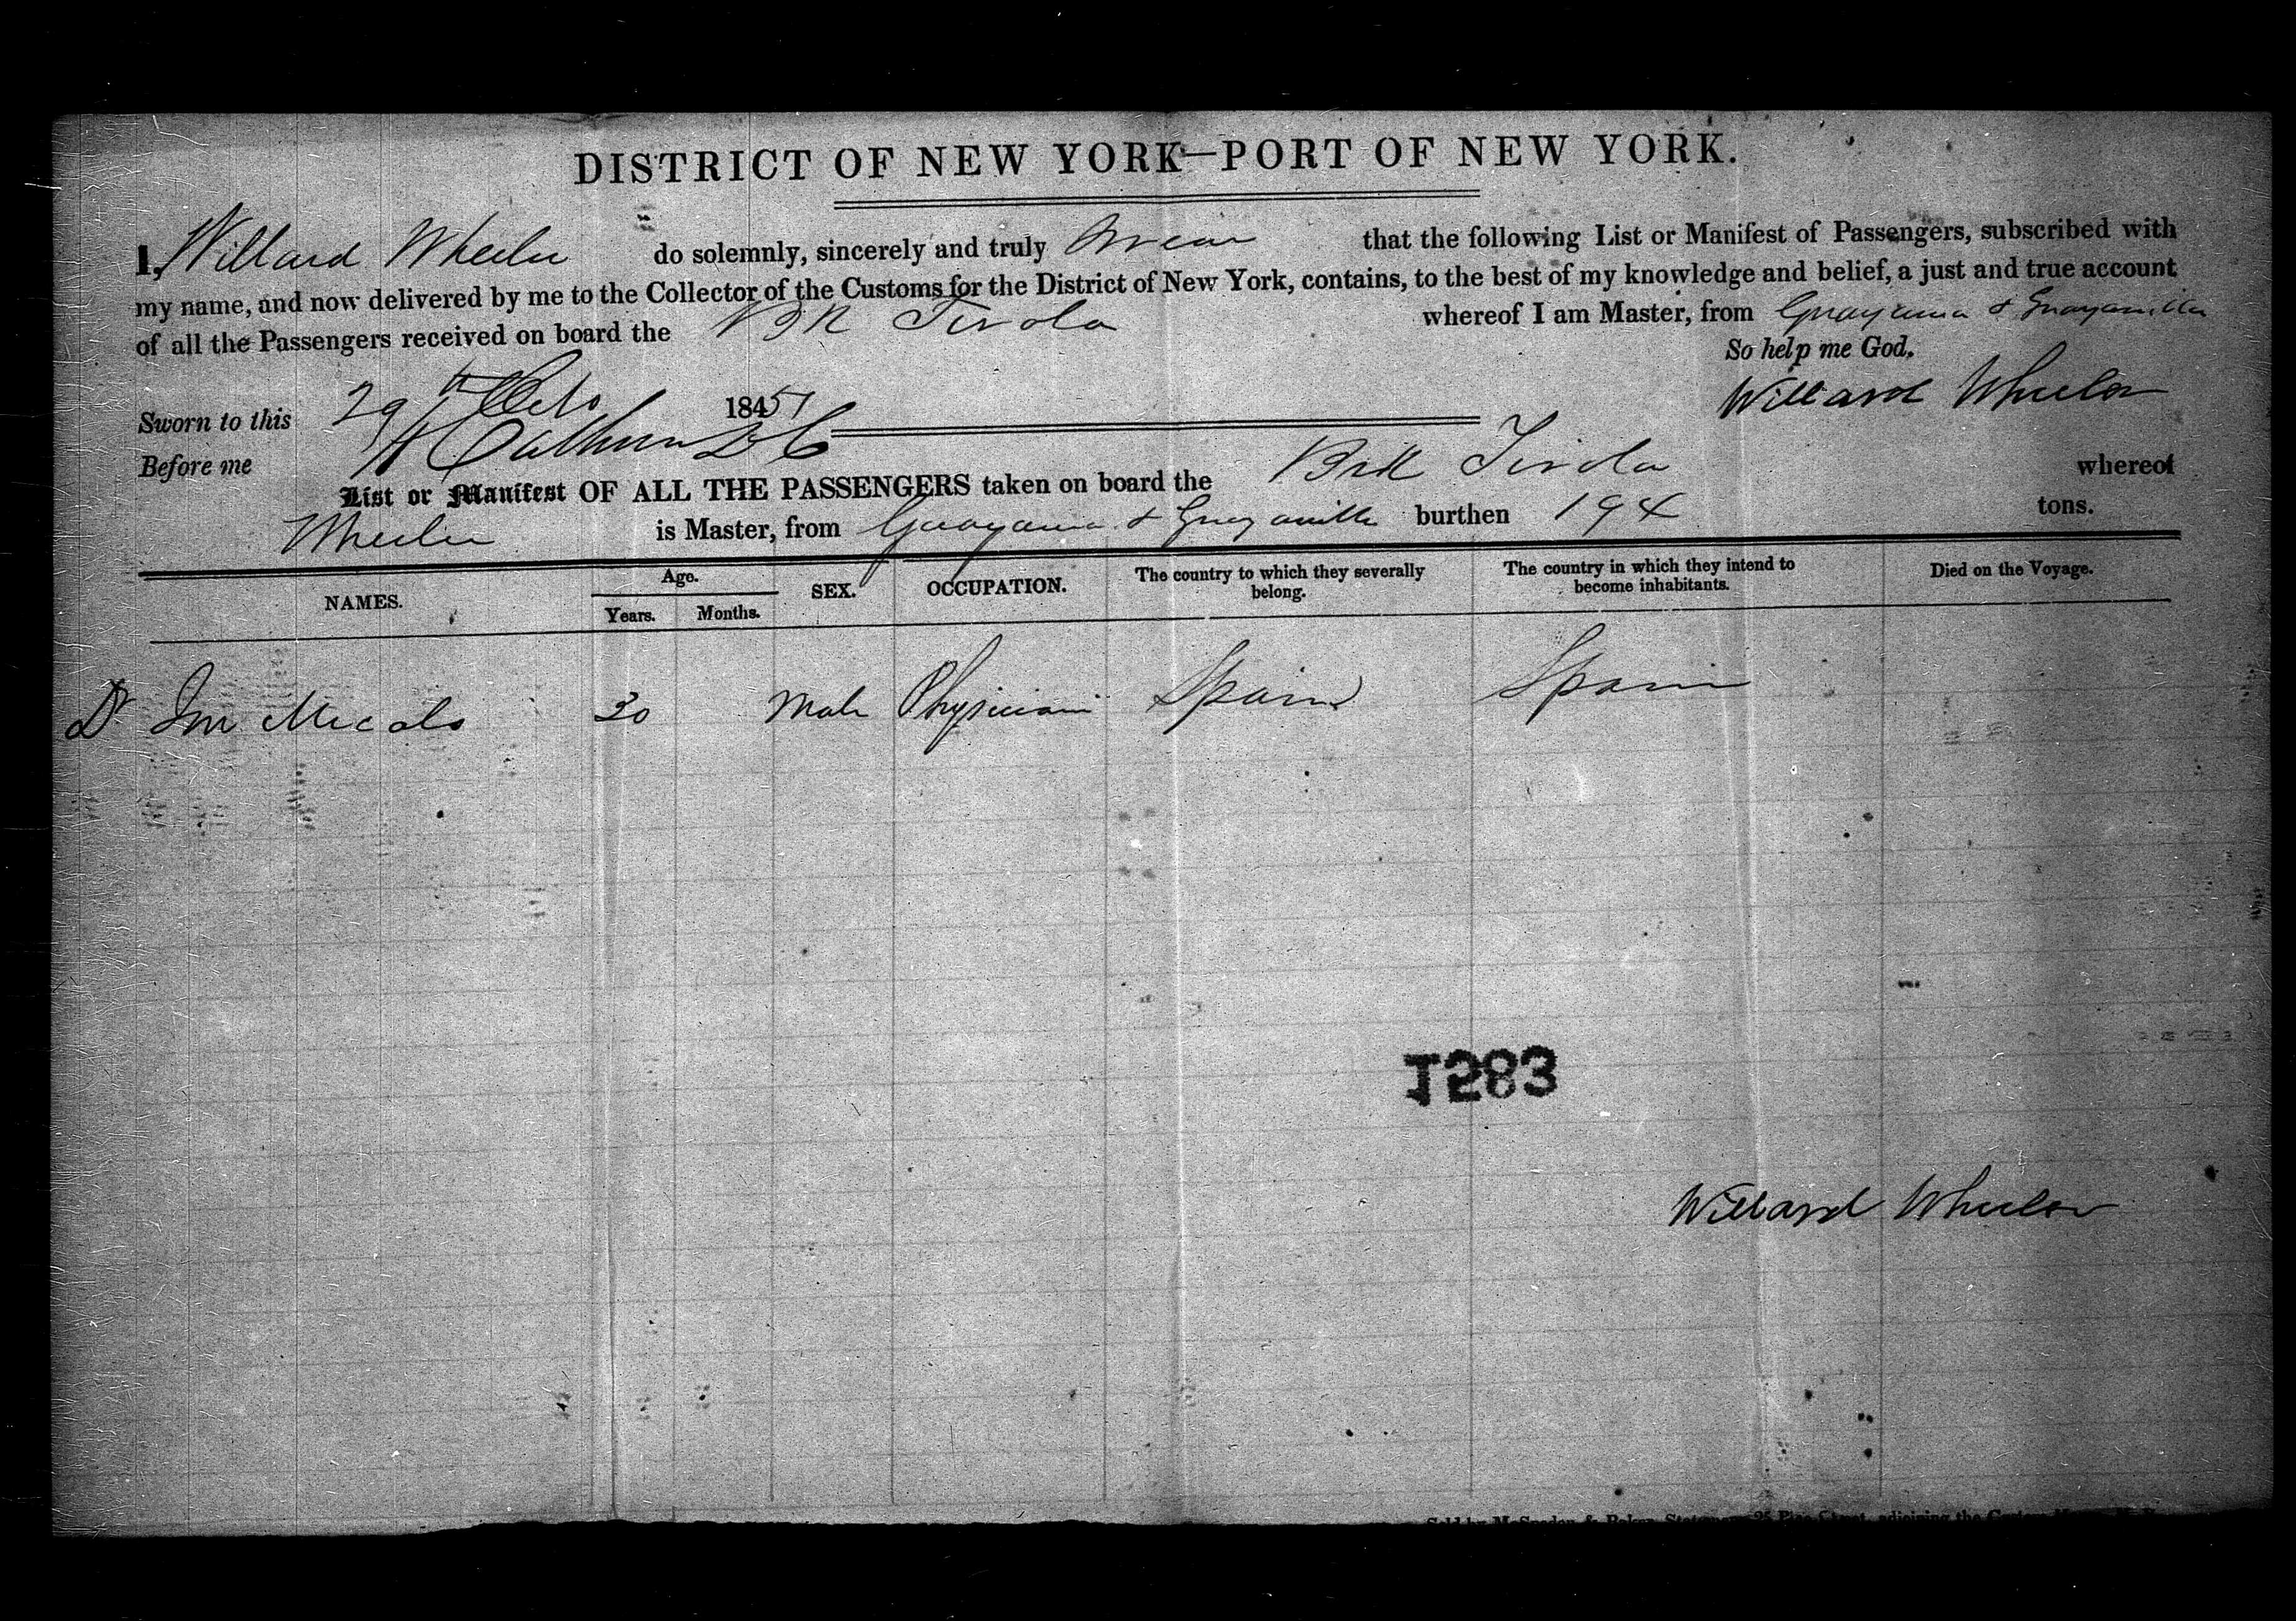 DISTRICT OF NEW YORK—PORT OF NEW YORK.
I, Willard Wheeler do solemnly, sincerely and truly Swear that the following List or Manifest of Passengers, subscribed with
my name, and now delivered by me to the Collector of the Customs for the District of New York, contains, to the best of my knowledge and belief, a just and true account
of all the Passengers received on board the whereof I am Master, from Guayama & Guayanilla
So help me God.
Sworn to this 29th 1851 Willard Wheeler
Before me Calhoun
List or Manifest OF ALL THE PASSENGERS taken on board the whereof
Wheeler is Master, from Guayama & Guayanilla burthen 194 tons.
NAMES. Age. Years. Months. SEX. OCCUPATION. The country to which they severally belong. The country in which they intend to become inhabitants. Died on the Voyage.
Dr 30 Male Physician Spain Spain
1283
Willard Wheeler